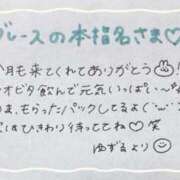 ブレースの本指名さま♡
月も来てくれてありがとう
オビタ飲んで元気いっぱい
もらったパックしてるよ(˙˘˙)
はひきわり待っててね♡笑
ゆずるより☺